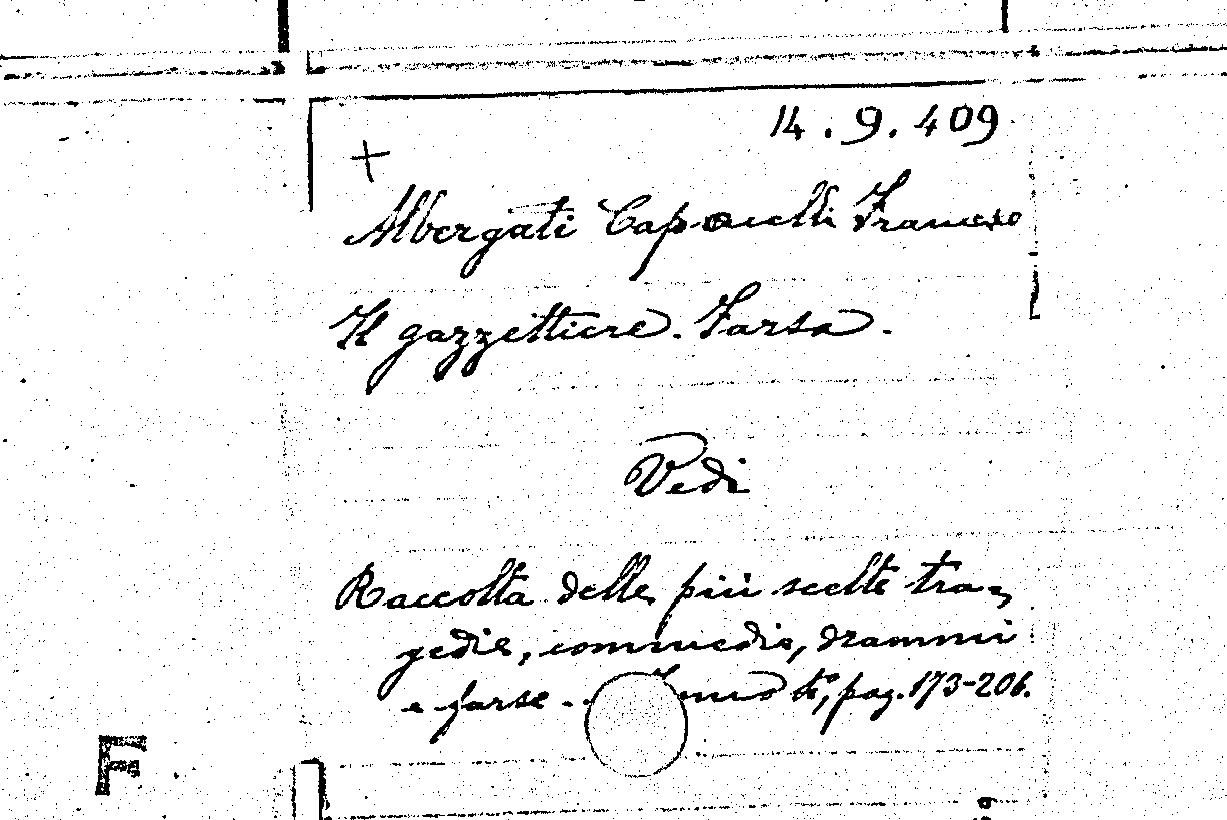 14.9.409
+
Albergati Capacelli Francesco
Il gazzettiere. Farsa.
Vedi
Raccolta delle più scelte tra-
gedie, commedie, drammi
e farse . . pag. 173-206.
F